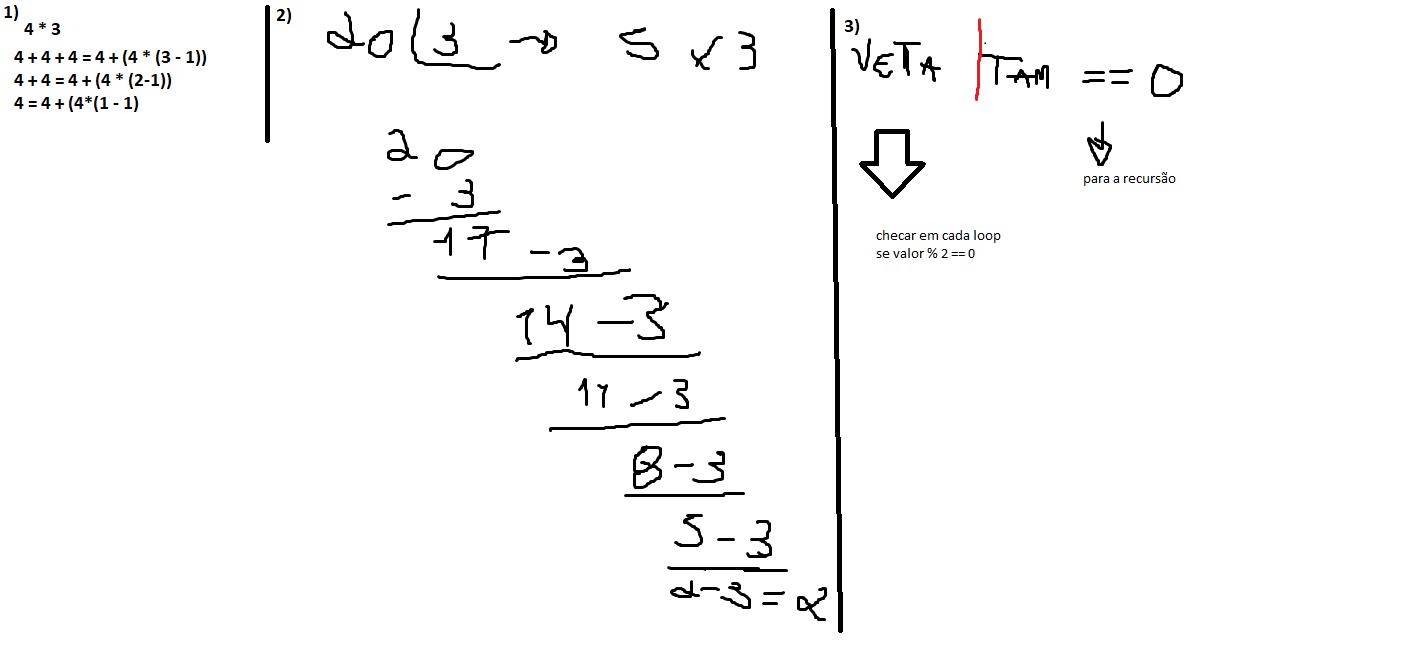 1)
4 * 3
4 + 4 + 4 = 4 + (4 * (3 - 1))
4 + 4 = 4 + (4 * (2-1))
4 = 4 + (4*(1 - 1)
2)
20 3 → 5 x 3
20
- 3
17 - 3
14 - 3
11 - 3
8 - 3
5 - 3
2 - 3 = 2
3)
VETA TAM == 0
para a recursão
checar em cada loop
se valor % 2 == 0